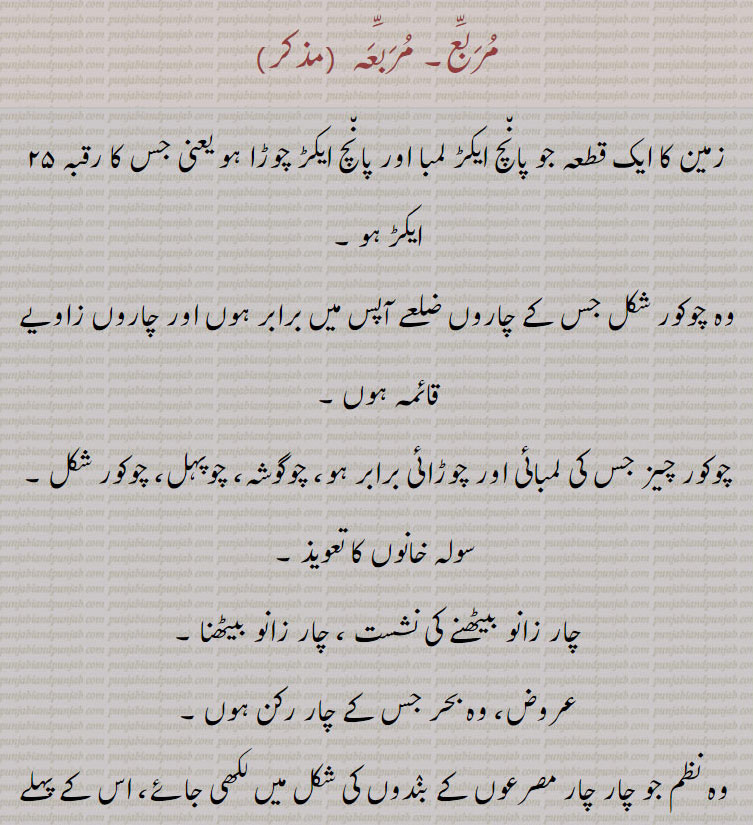 مُرَبِّع۔ مُرَبَّعَہ (مذکر)
زمین کا ایک قطعہ جو پانْچ ایکڑ لمبا اور پانْچ ایکڑ چوڑا ہو یعنی جس کا رقبہ ۲۵
ایکڑ ہو ۔
وہ چوکور شکل جس کے چاروں ضلعے آپس میں برابر ہوں اور چاروں زاویے
قائمہ ہوں ۔
چوکور چیز جس کی لمبائی اور چوڑائی برابر ہو، چوگوشہ، چوپہل، چوکور شکل ۔
سولہ خانوں کا تعویذ ۔
چار زانو بیٹھنے کی نشست ، چار زانو بیٹھنا ۔
عروض، وہ بحر جس کے چار رکن ہوں ۔
وہ نظم جو چار چار مصرعوں کے بنْدوں کی شکل میں لکھی جائے، اس کے پہلے